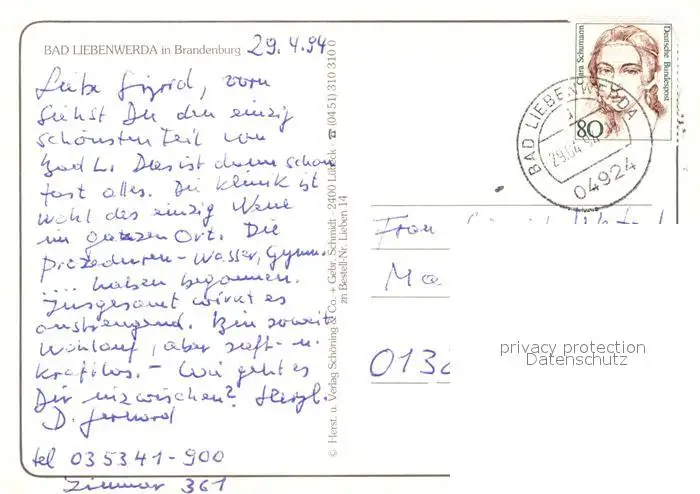 BAD LIEBENWERDA in Brandenburg 29.4.94
Liebe Sigrid, vorn
siehst Du den einzig
schönsten Teil von
Bad L. Das ist dann schon
fast alles. Die Klinik ist
wohl das einzig Neue
im ganzen Ort. Die
Prozeduren - Wasser, Gymn.
.... haben begonnen.
Insgesamt wirkt es
anstrengend. Bin soweit
wohlauf, aber saft- u.
kraftlos. - Wie geht es
Dir inzwischen? Herzl.
D. Gerhard
tel 035341-900
Zimmer 361
© Herst. u. Verlag Schöning & Co. + Gebr. Schmidt · 2400 Lübeck · ☎ (04 51) 310 310 0
zu Bestell-Nr. Lieben 14
Clara Schumann
Deutsche Bundespost
80
BAD LIEBENWERDA
04924
Frau
Ma
013
privacy protection
Datenschutz